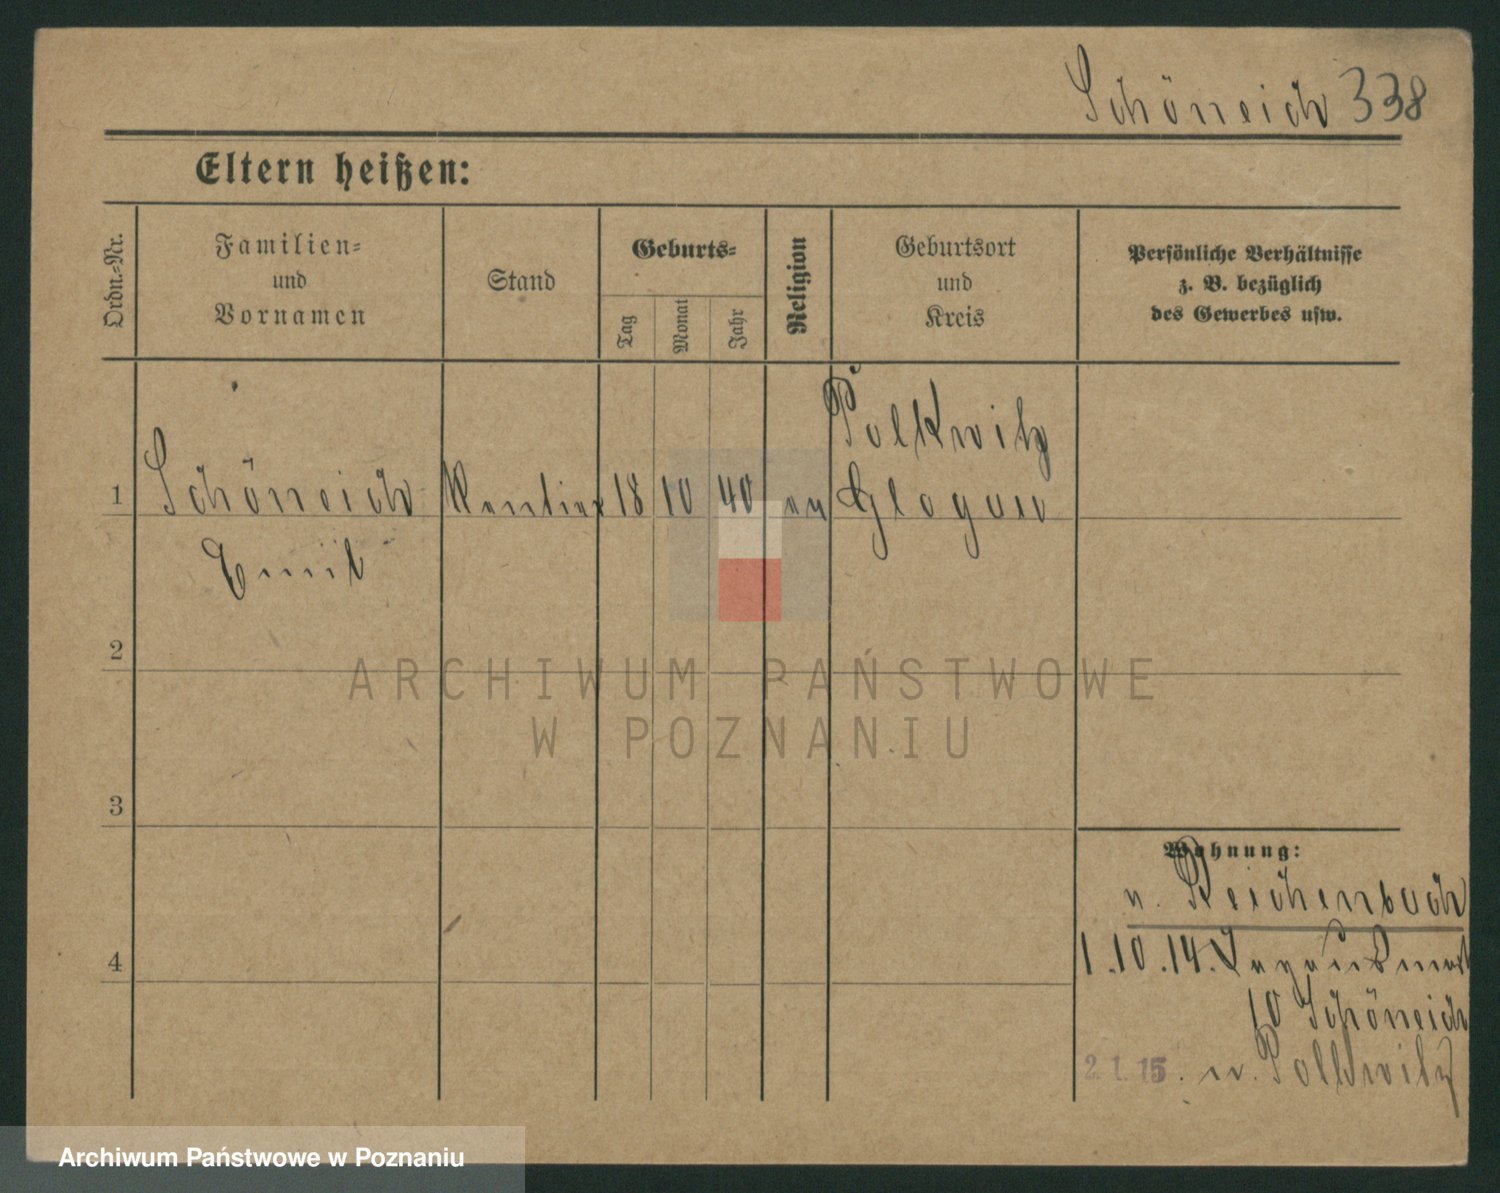 Schöneich 338
Eltern heißen:
Ordn.-Nr.
Familien-
und
Vornamen
Stand
Geburts-
Tag
Monat
Jahr
Religion
Geburtsort
und
Kreis
Persönliche Verhältnisse
z. B. bezüglich
des Gewerbes usw.
Polkwitz
1 Schöneich Rentier 18 10 40 ev Glogau
Emil
2
ARCHIWUM PAŃSTWOWE
W POZNANIU
3
4
Wohnung:
n. Reichenbach
1.10.14.
10 Schöneich
2.1.15. n. Polkwitz
Archiwum Państwowe w Poznaniu